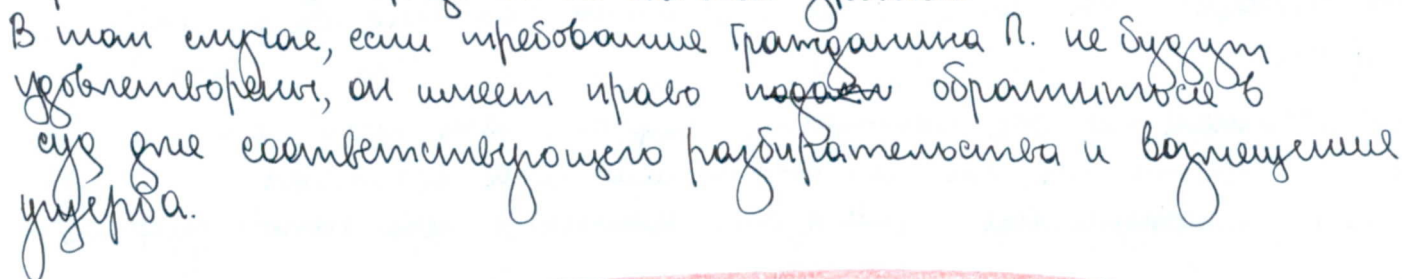 В том случае, если требования Гражданина П. не будут
удовлетворены, он имеет право подать обратиться в
суд для соответствующего разбирательства и возмещения
ущерба.